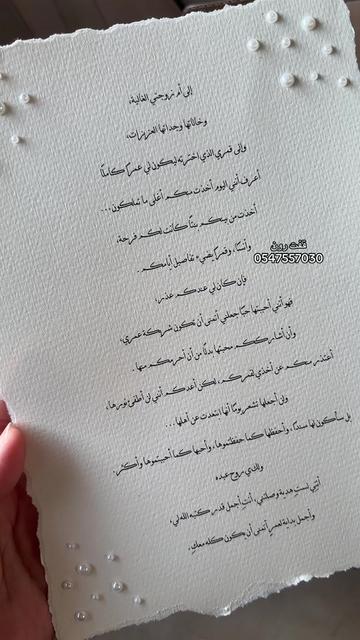 إلى أم زوجتي الغالية،
وخالاتها وجداتها العزيزات،
وإلى قمري الذي اخترته ليكون لي عمراً كاملاً
أعرف أنني اليوم أخذت منكم أغلى ما تملكون...
أخذت من بيتكم بنتاً كانت لكم فرحة،
وأنساً، وقمراً يضيء تفاصيل أيامكم.
فإن كان لي عندكم عذر،
فهو أنني أحببتها حباً جعلني أتمنى أن تكون شريكة عمري،
وأن أشارككم محبتها بدلاً من أن أحرمكم منها.
أعتذر منكم عن أخذي لقمركم، لكن أعدكم أنني لن أطفئ نورها،
ولن أجعلها تشعر يوماً أنها ابتعدت عن أهلها...
بل سأكون لها سنداً، وأحفظها كما حفظتموها، وأحبها كما أحببتموها وأكثر.
وللدي روح عبده
أنتِ لستِ هدية وصلتني، أنتِ أجمل قدر كتبه الله لي،
وأجمل بداية لعمرٍ أتمنى أن تكون كله معكِ.
قفت روق
0547557030